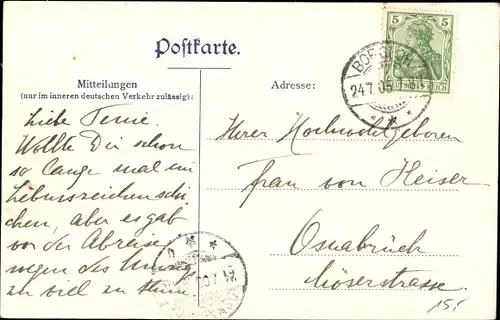 Postkarte.
Mitteilungen
(nur im inneren deutschen Verkehr zulässig):
Adresse:
5 5
DEUTSCHES REICH
24.7.05
Liebe
Wollte Dir schon
so lange mal ein
Lebenszeichen schi-
cken, aber es gab
vor der Abreise
wegen des Umzugs
zu viel zu thun.
Ihrer Hochwohlgeboren
Frau von Heiser
Osnabrück
Möserstrasse
15.-